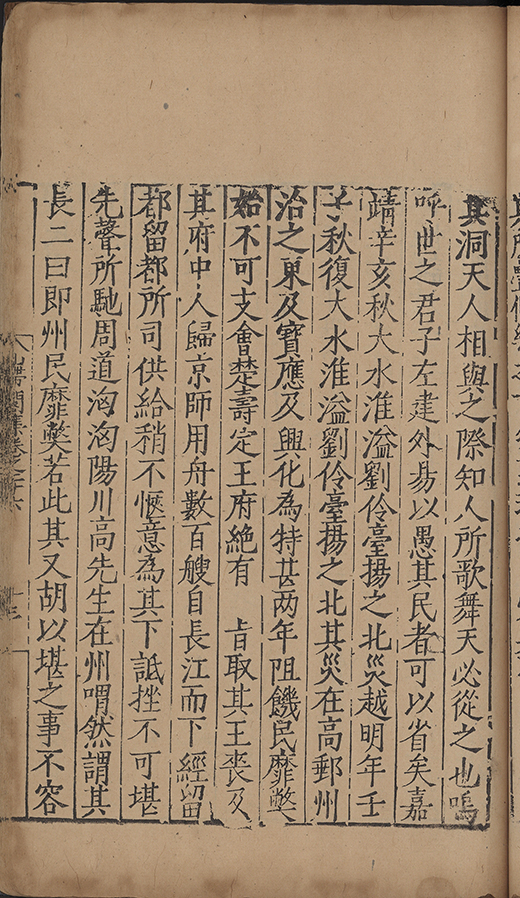 其洞天人相與之際知人所歌舞天必從之也嗚
呼世之君子左建外易以愚其民者可以省矣嘉
靖辛亥秋大水淮溢劉伶臺揚之北災越明年壬
子秋復大水淮溢劉伶臺揚之北其災在高郵州
治之東及寶應及興化為特甚两年阻饑民靡獘
始不可支會楚壽定王府絶有　旨取其王喪及
其府中人歸京師用舟數百艘自長江而下經留
都留都所司供給稍不愜意為其下詆挫不可堪
先聲所馳周道洶洶陽川高先生在州喟然謂其
長二曰即州民靡獘若此其又胡以堪之事不容